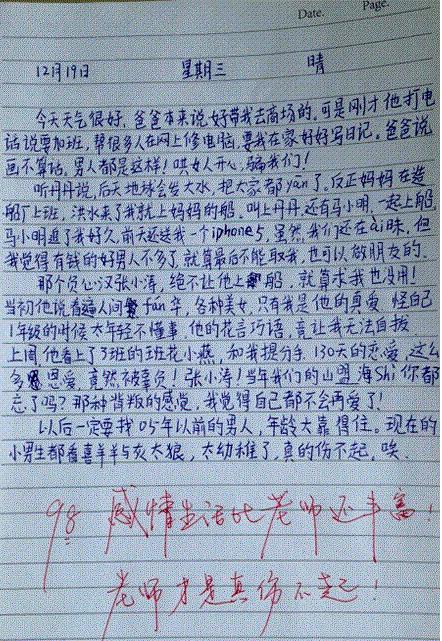 Date.
Page.
12月19日 星期三 晴
今天天气很好，爸爸本来说好带我去商场的，可是刚才他打电
话说要加班，帮很多人在网上修电脑，要我在家好好写日记。爸爸说
画不算话，男人都是这样！哄女人开心，骗我们！
听丹丹说，后天地球会发大水，把大家都yān了。反正妈妈在造
船厂上班，洪水来了我就上妈妈的船，叫上丹丹，还有马小明，一起上船。
马小明追了我好久，前天还送我一个iphone5，虽然我们还在ài昧，但
我觉得有钱的好男人不多了，就算最后不能取我，也可以做朋友的。
那个负心汉张小涛，绝不让他上船，就算求我也没用！
当初他说看遍人间fán华，各种美女，只有我是他的真爱，怪自己
1年级的时候太年轻不懂事，他的花言巧语，竟让我无法自拔
上周他看上了3班的班花小燕，和我提分手，130天的恋爱，这么
多恩爱，竟然被辜负！张小涛！当年我们的山盟海Shi你都
忘了吗？那种背叛的感觉，我觉得自己都不会再爱了！
以后一定要找05年以前的男人，年龄大靠得住。现在的
小男生都看喜羊羊与灰太狼，太幼稚了，真的伤不起，唉．
98 感情生活比老师还丰富！
老师才是真伤不起！